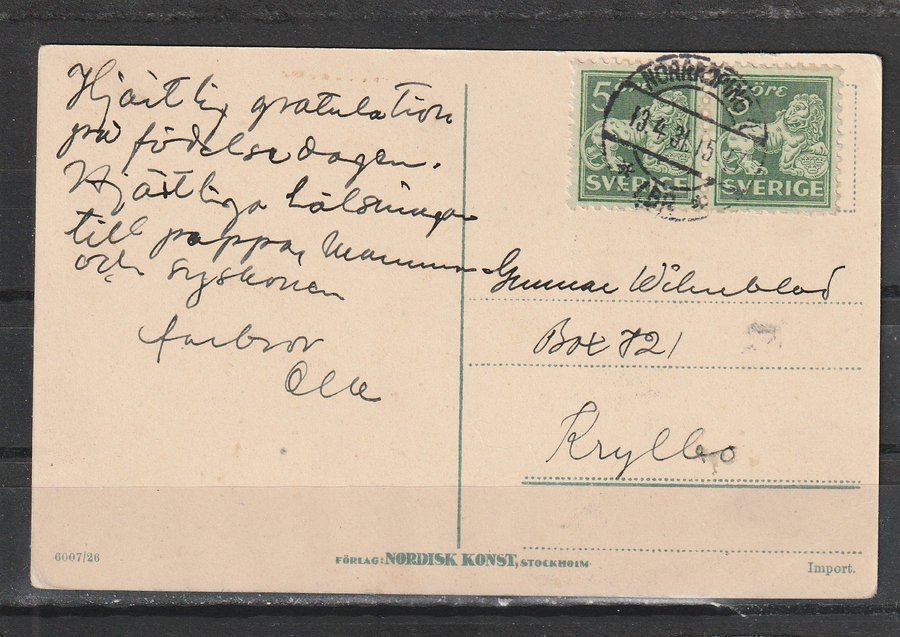 Hjärtlig gratulation
på födelsedagen.
Hjärtliga hälsningar
till pappa, Mamma
och syskonen
farbror
Olle
5
ÖRE
SVERIGE
SVERIGE
NORRKÖPING 1
13.4.31.15
Gunnar Wilenblad
Box 721
Krylbo
6007/26
FÖRLAG: NORDISK KONST, STOCKHOLM
Import.